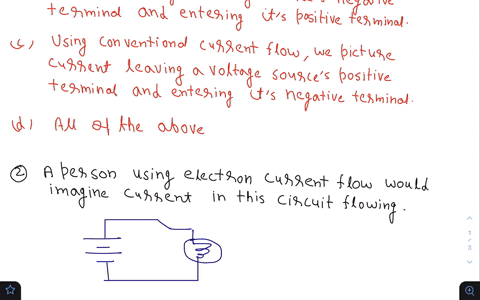 terminal and entering it's positive terminal.
(c) Using conventional current flow, we picture
current leaving a voltage source's positive
terminal and entering it's negative terminal.
(d) All of the above
② A person using electron current flow would
imagine current in this circuit flowing.
1
/
3